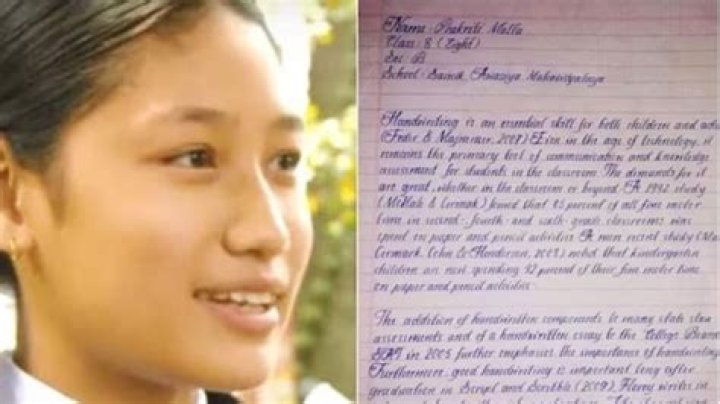 Name : Prakriti Malla
Class : 8 (Eight)
Sec : B
School : Sainik Awasiya Mahavidyalaya
Handwriting is an essential skill for both children and adu
(Feder & Majnemer, 2007) Even in the age of technology, it
remains the primary tool of communication and knowledge
assessment for students in the classroom. The demands for it
are great, whether in the classroom or beyond. A 1992 study
(McHale & Cermak) found that 85 percent of all fine motor
time in second-, fourth- and sixth-grade classrooms was
spent on paper and pencil activities. A more recent study (Ma
Cermark, Cohn & Henderson, 2003) noted that kindergarten
children are now spending 42 percent of their fine motor time
on paper and pencil activities.
The addition of handwritten components to many state stan
assessments and of a handwritten essay to the College Board
SAT in 2005 further emphasis the importance of handwriting
Furthermore, good handwriting is important long after
graduation. in Script and Scribble (2009), Florey writes in